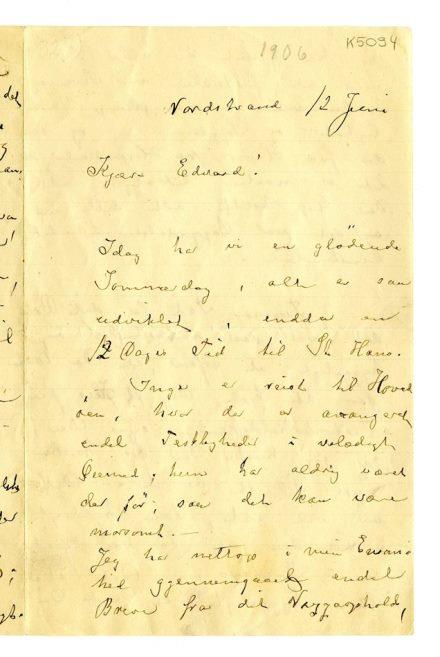 1906
K5094
Nordstrand 12 Juni
Kjære Edvard!
Idag har vi en glödende
Sommerdag, alt er saa
udviklet, endda en
12 Dages Tid til St Hans.
Inger er reist til Hoved
öen, hvor der er arrangeret
endel Festligheder i veldædigt
Öiemed, hun har aldrig været
der för, saa det kan være
morsomt. —
Jeg har nettop i min Ensom
hed gjennemgaaet endel
Breve fra dit